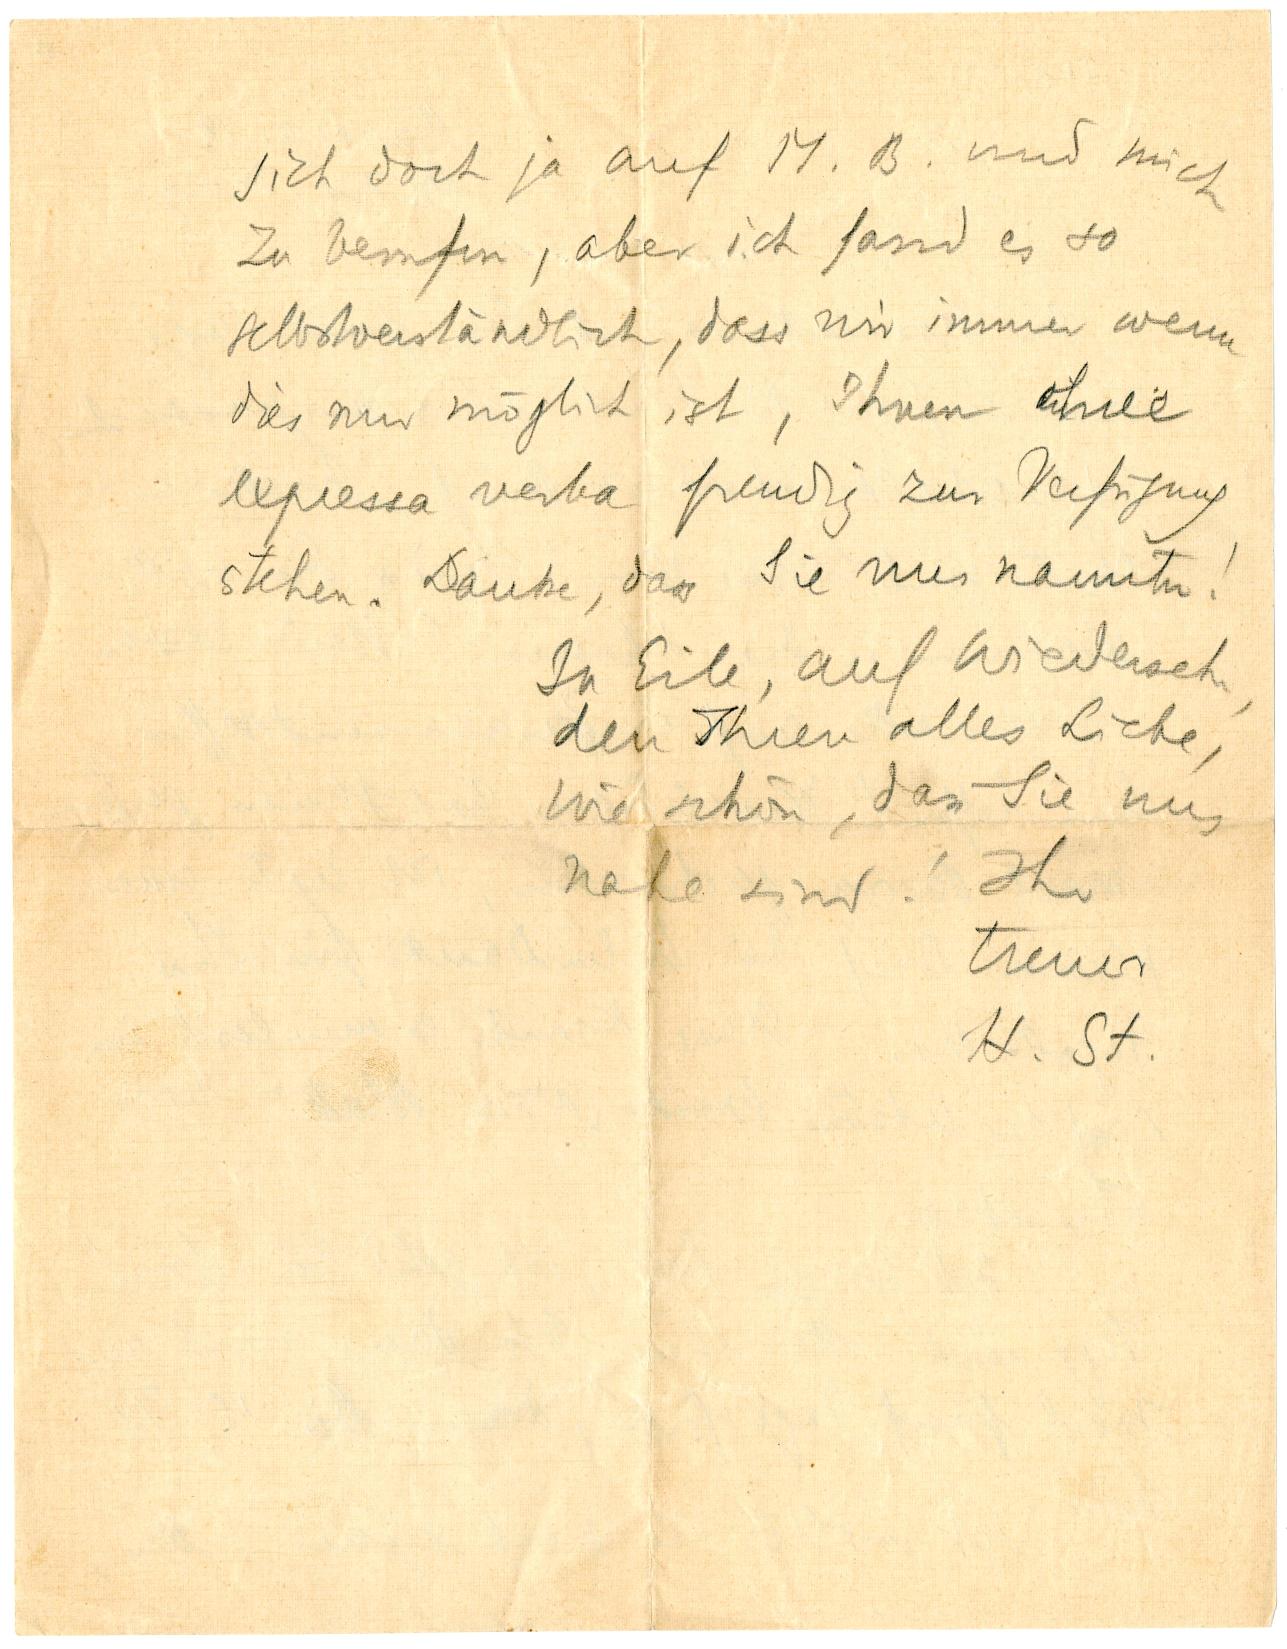 sich doch ja auf M. B. und mich
zu berufen, aber ich fand es so
selbstverständlich, dass wir immer wenn
dies nur möglich ist, Ihnen ohne
expressa verba freudig zur Verfügung
stehen. Danke, dass Sie uns nannten!
In Eile, auf Wiedersehn,
den Ihren alles Liebe,
wie schön, dass Sie uns
nahe sind! Ihr
treuer
H. St.